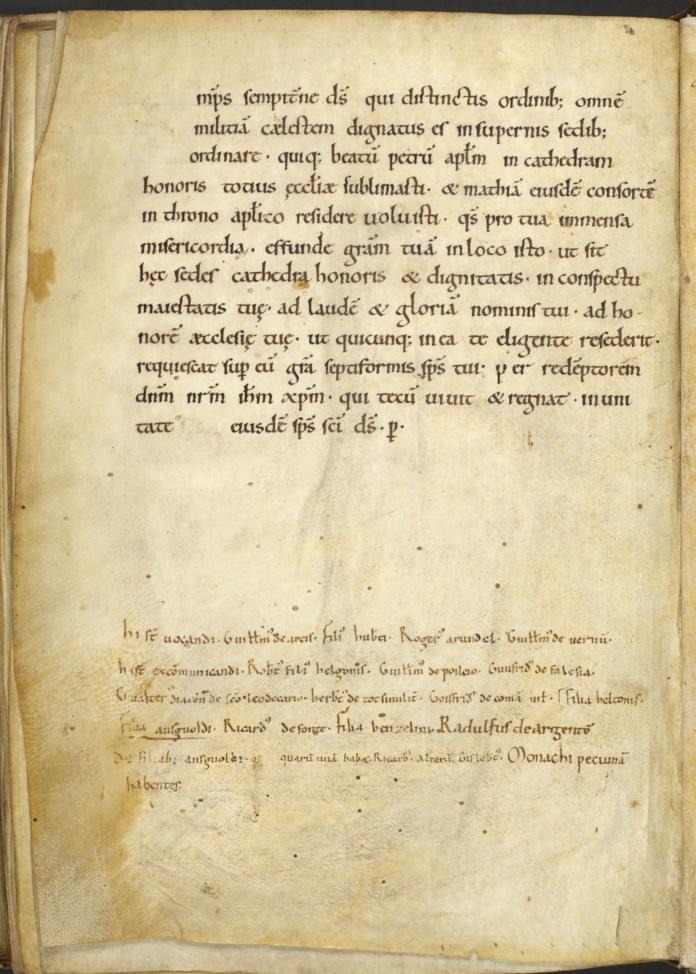 m̅ps sempit̅ne d̅s qui distinctis ordinib; omne̅
militia̅ cælestem dignatus es in supernis sedib;
ordinare · quiq; beatu̅ petru̅ apl̅m in cathedram
honoris totius ęccl̅iæ sublimasti · & mathia̅ eiusde̅ consorte̅
in throno apl̅ico residere uoluisti · q̅s pro tua immensa
misericordia · effunde gr̅am tua̅ in loco isto · ut sit
hęc sedes cathedra honoris & dignitatis · in conspectu
maiestatis tuę · ad laude̅ & gloria̅ nominis tui · ad ho-
nore̅ æcclesię tuę · ut quicunq; in ea te eligente resederit ·
requiescat sup̱ eu̅ gr̅a septiformis sp̅s tui · p er rede̅ptorem
dn̅m nr̅m ih̅m xp̅m · qui tecu̅ uiuit & regnat · in uni
tate eiusde̅ sp̅s sc̅i d̅s · p̱ ·
hi st̅ uocandi · Guill̅m' de arcis · fili' hub̅ti · Roger' arundel · Guill̅m' de uernu̅ ·
hi st̅ exco̅municandi · Rob̅t' fili' helgonis · Guill̅m' de poileio · Guiffrid' de falesia ·
Gualter' diacon' de sc̅o leodecario · herb̅t' de tocsinuilt · Goisfrid' de coma̅ uil̅ · filia heltonis ·
filia ansguoldi · Ricard' de fonte · filia benzelini · Radulfus de argento̅
De filiab; ansguoldi · quaru̅ una̅ habæt Ricard' · altera̅ Gisleb̅t' · Monachi pecunia̅
habentes ·